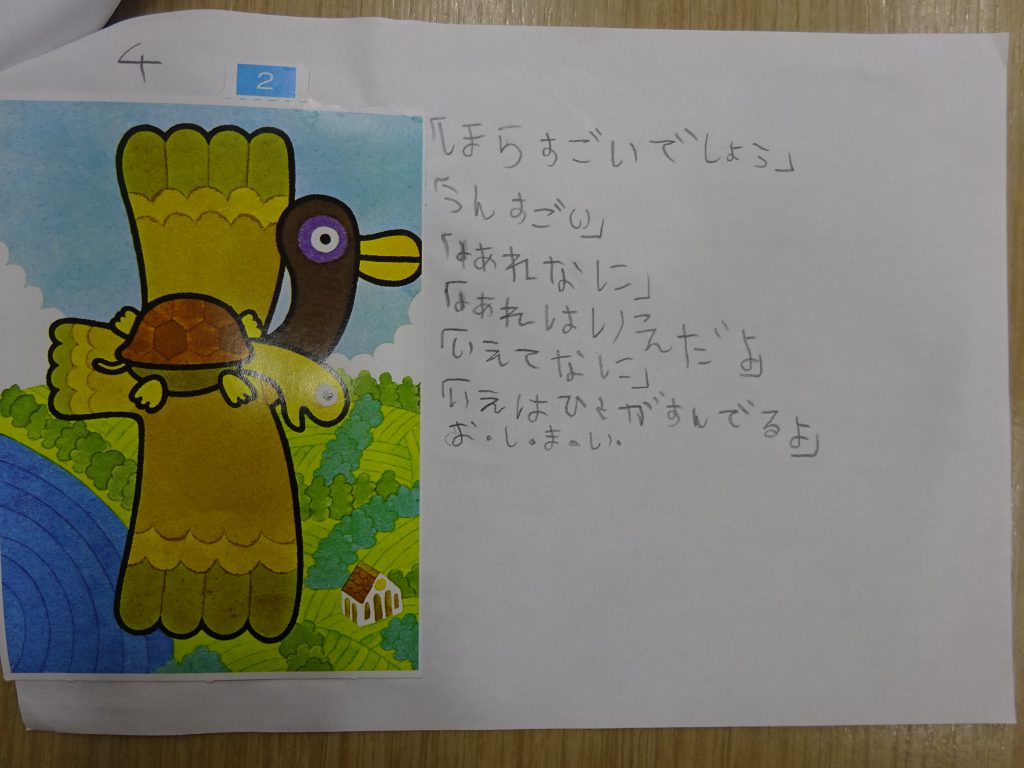 4
2
「ほらすごいでしょう」
「うんすごい」
「ねあれなに」
「あれはいえだよ」
「いえてなに」
「いえはひとがすんでるよ」
お・し・ま・い・